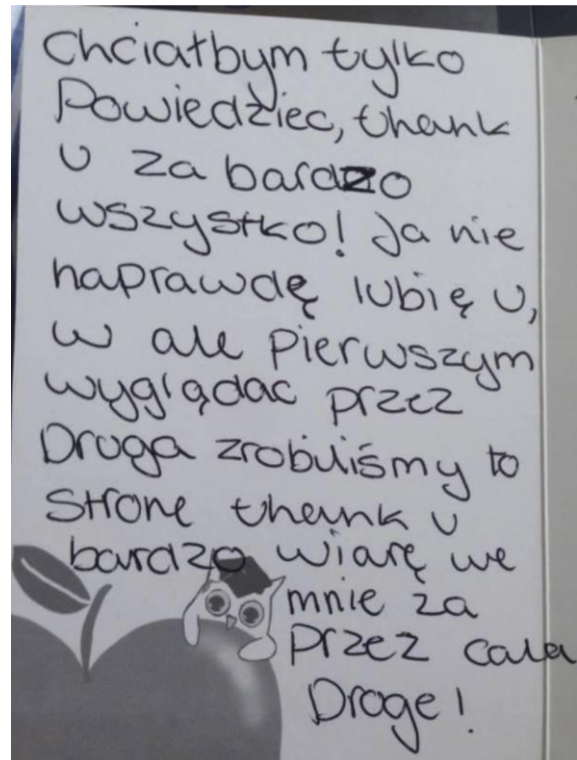 Chciałbym tylko
Powiedziec, thank
U za bardzo
wszystko! Ja nie
naprawdę lubię U,
w ale pierwszym
wyglądac przez
Druga zrobiliśmy to
Strone thank U
bardzo wiarę we
mnie za
przez cała
Droge!